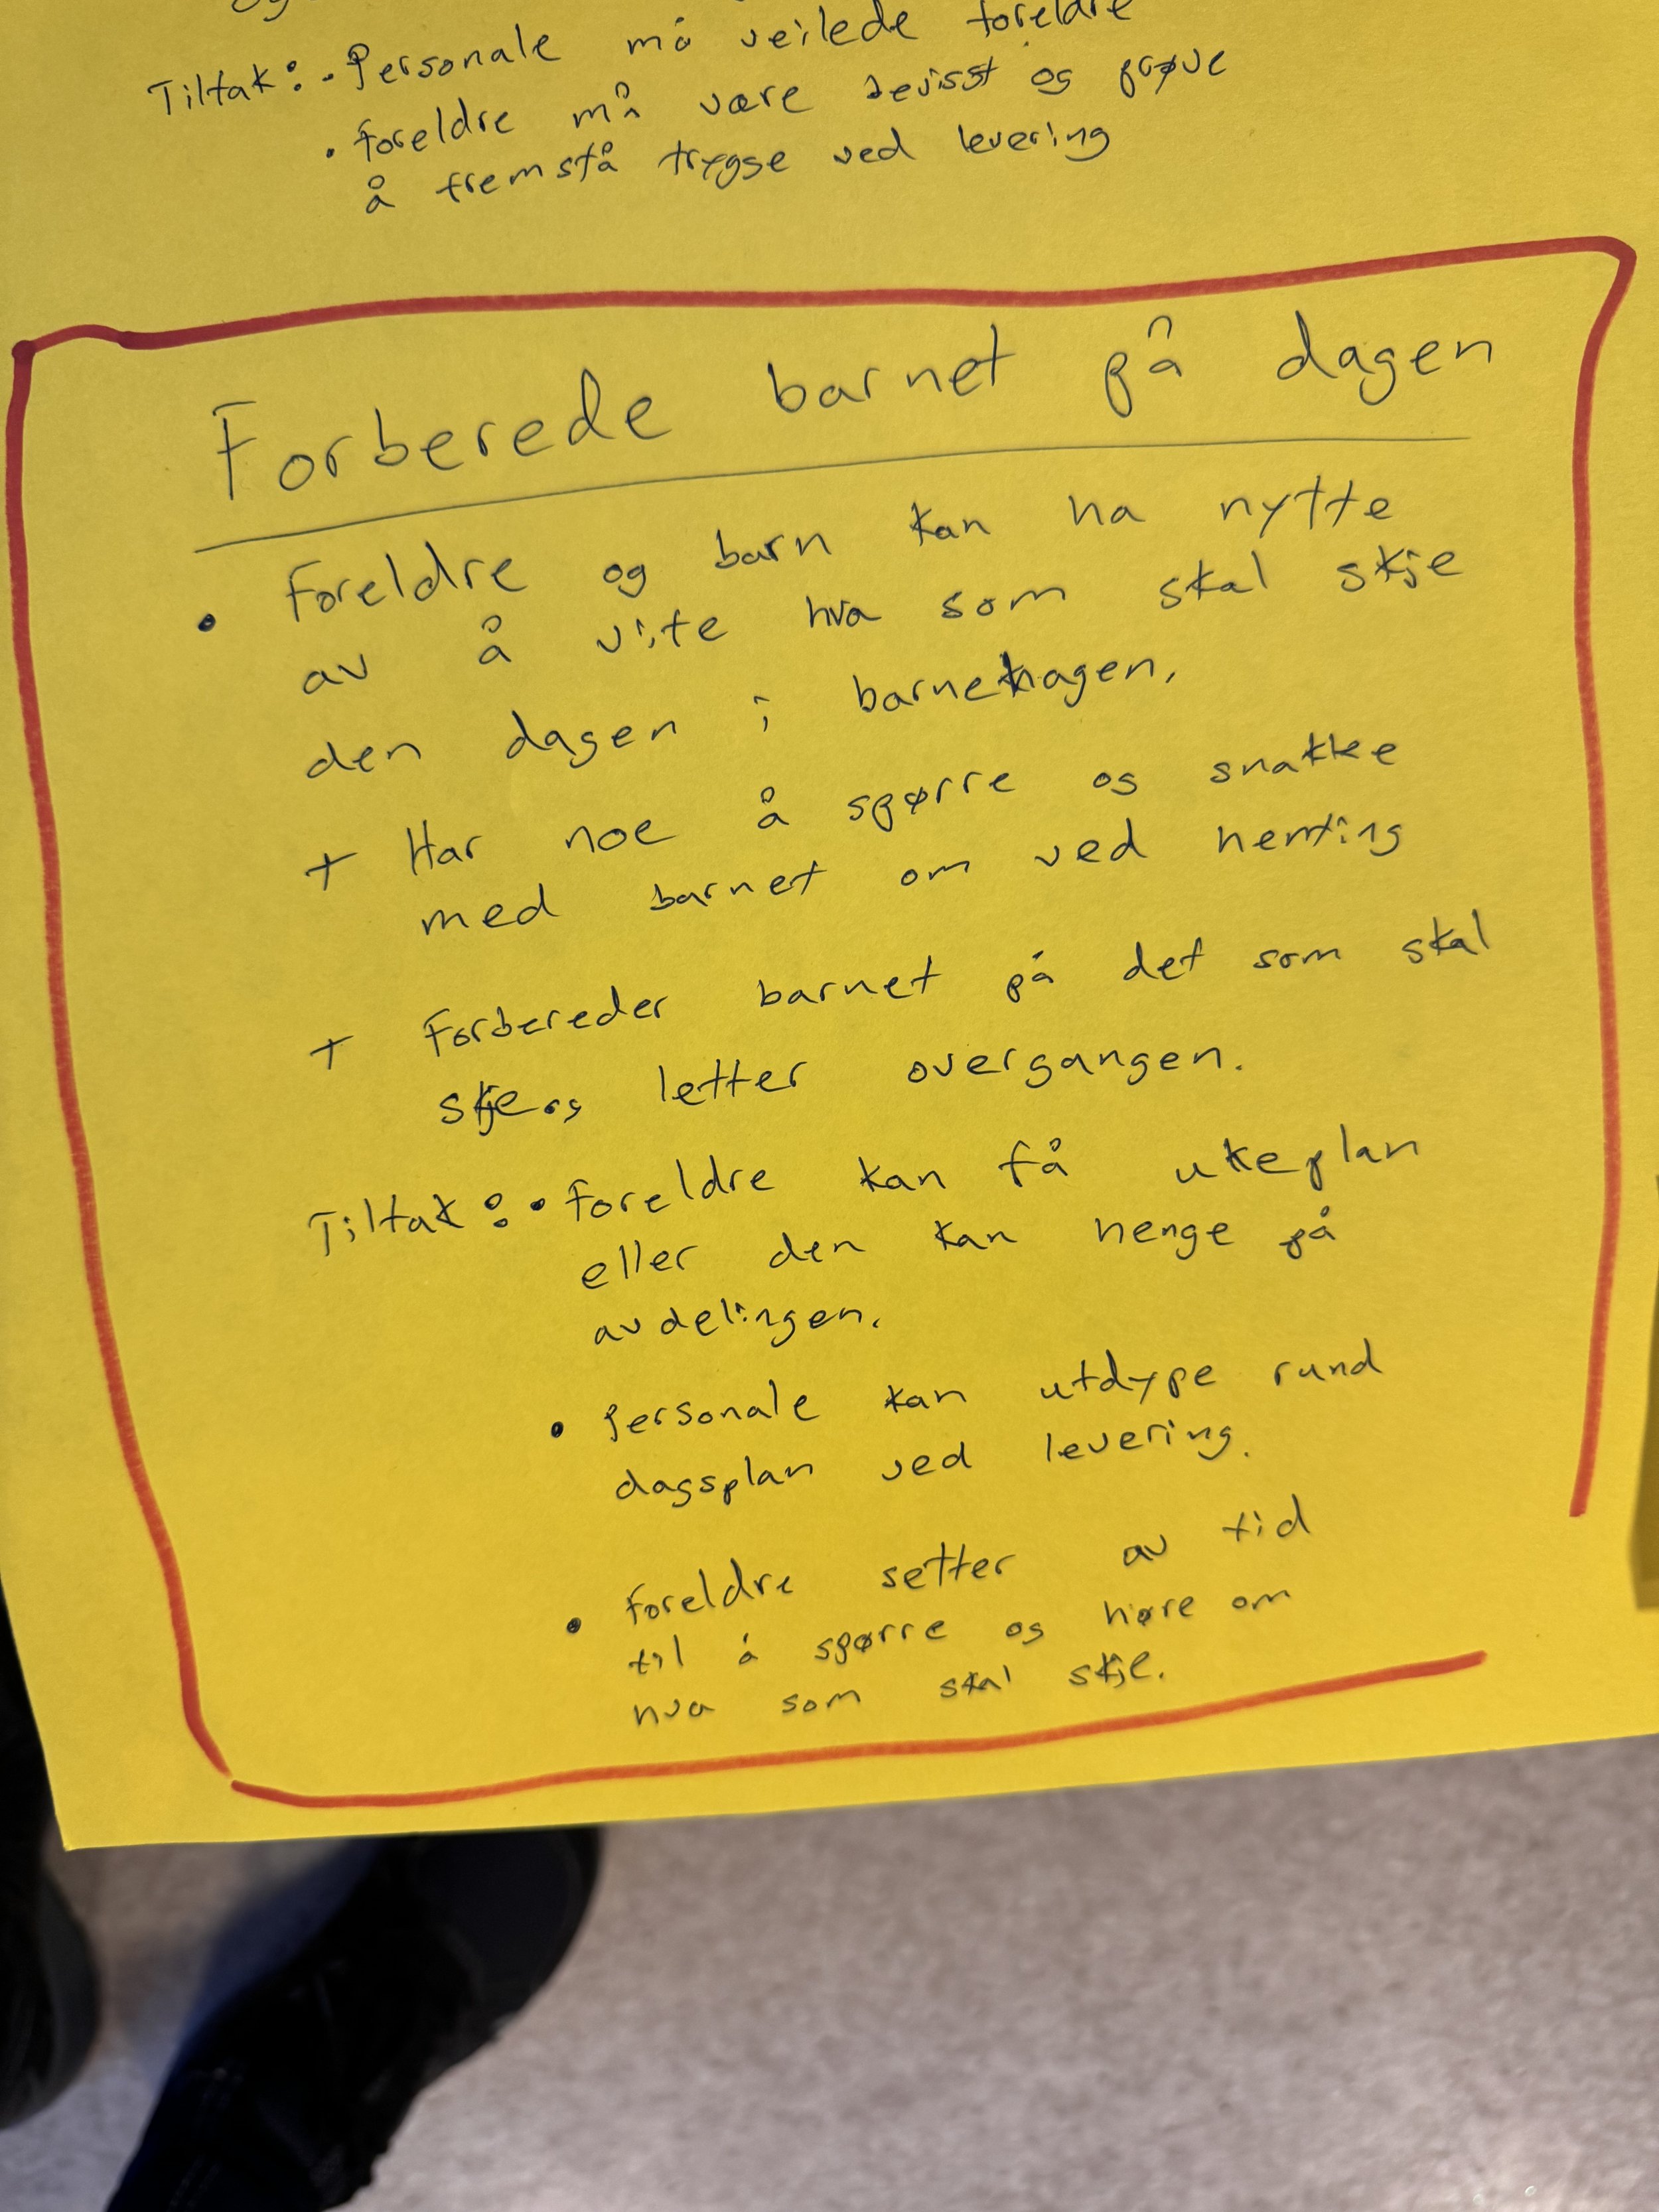 Tiltak: • Personale må veilede foreldre
• Foreldre må være bevisst og prøve
å fremstå trygge ved levering
Forberede barnet på dagen
• Foreldre og barn kan ha nytte
av å vite hva som skal skje
den dagen i barnehagen.
+ Har noe å spørre og snakke
med barnet om ved henting
+ Forbereder barnet på det som skal
skje og letter overgangen.
Tiltak: • Foreldre kan få ukeplan
eller den kan henge på
avdelingen.
• Personale kan utdype rund
dagsplan ved levering.
• Foreldre setter av tid
til å spørre og høre om
hva som skal skje.